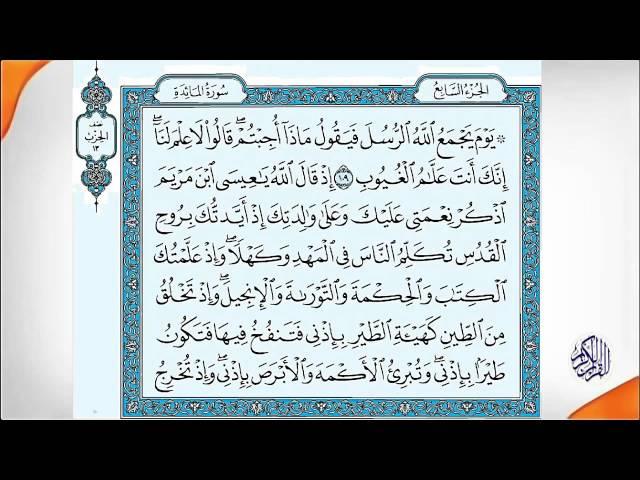 الجزء السابع
سورة المائدة
نصف
الحزب
١٣
۞ يَوْمَ يَجْمَعُ اللَّهُ الرُّسُلَ فَيَقُولُ مَاذَا أُجِبْتُمْ ۖ قَالُوا لَا عِلْمَ لَنَا ۖ
إِنَّكَ أَنتَ عَلَّامُ الْغُيُوبِ ١٠٩ إِذْ قَالَ اللَّهُ يَاعِيسَى ابْنَ مَرْيَمَ
اذْكُرْ نِعْمَتِي عَلَيْكَ وَعَلَىٰ وَالِدَتِكَ إِذْ أَيَّدتُّكَ بِرُوحِ
الْقُدُسِ تُكَلِّمُ النَّاسَ فِي الْمَهْدِ وَكَهْلًا ۖ وَإِذْ عَلَّمْتُكَ
الْكِتَابَ وَالْحِكْمَةَ وَالتَّوْرَاةَ وَالْإِنجِيلَ ۖ وَإِذْ تَخْلُقُ
مِنَ الطِّينِ كَهَيْئَةِ الطَّيْرِ بِإِذْنِي فَتَنفُخُ فِيهَا فَتَكُونُ
طَيْرًا بِإِذْنِي ۖ وَتُبْرِئُ الْأَكْمَهَ وَالْأَبْرَصَ بِإِذْنِي ۖ وَإِذْ تُخْرِجُ
القرآن الكريم